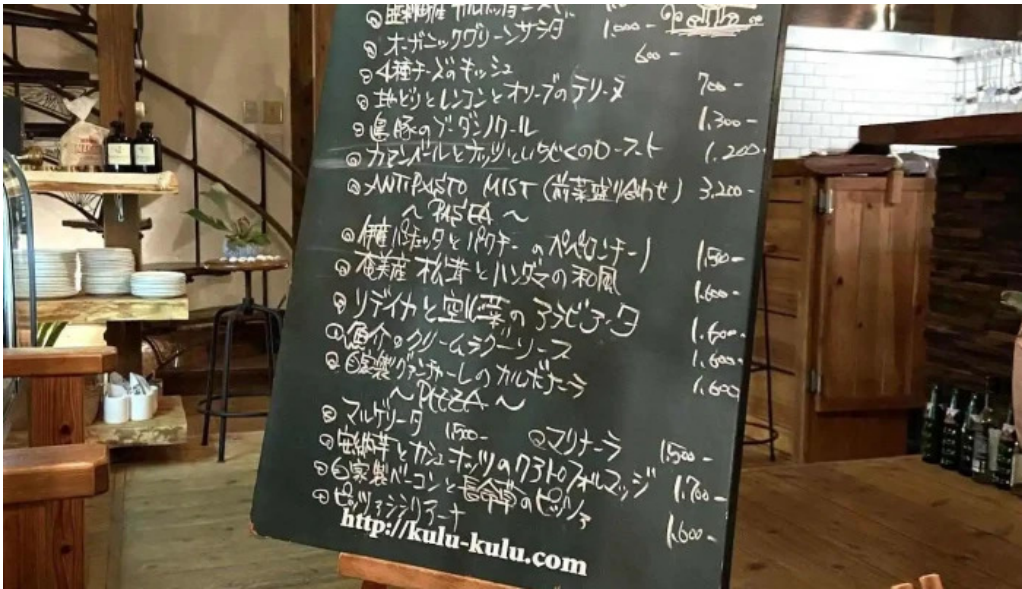 カルパッチョ
オーガニックグリーンサラダ 1.000-
4種チーズのキッシュ 600-
地どりとレンコンとオリーブのテリーヌ 700-
島豚のブーダンノワール 1.300-
カマンベールとナッツといちじくのロースト 1.200-
ANTIPASTO MIST (前菜盛り合わせ) 3.200-
～ PASTA ～
パンチェッタとパクチーのペペロンチーノ 1.500-
奄美産 松茸とハンダマの和風 1.600-
とアラビアータ 1.600-
魚介のクリームラグーソース 1.600-
自家製グアンチャーレのカルボナーラ 1.600
～ PIZZA ～
マルゲリータ 1.500- マリナーラ 1.500-
安納芋とカシューナッツのクワトロフォルマッジ 1.700-
自家製ベーコンと長命草のピッツァ 1.600-
ピッツァシシリアーナ
http://kulu-kulu.com